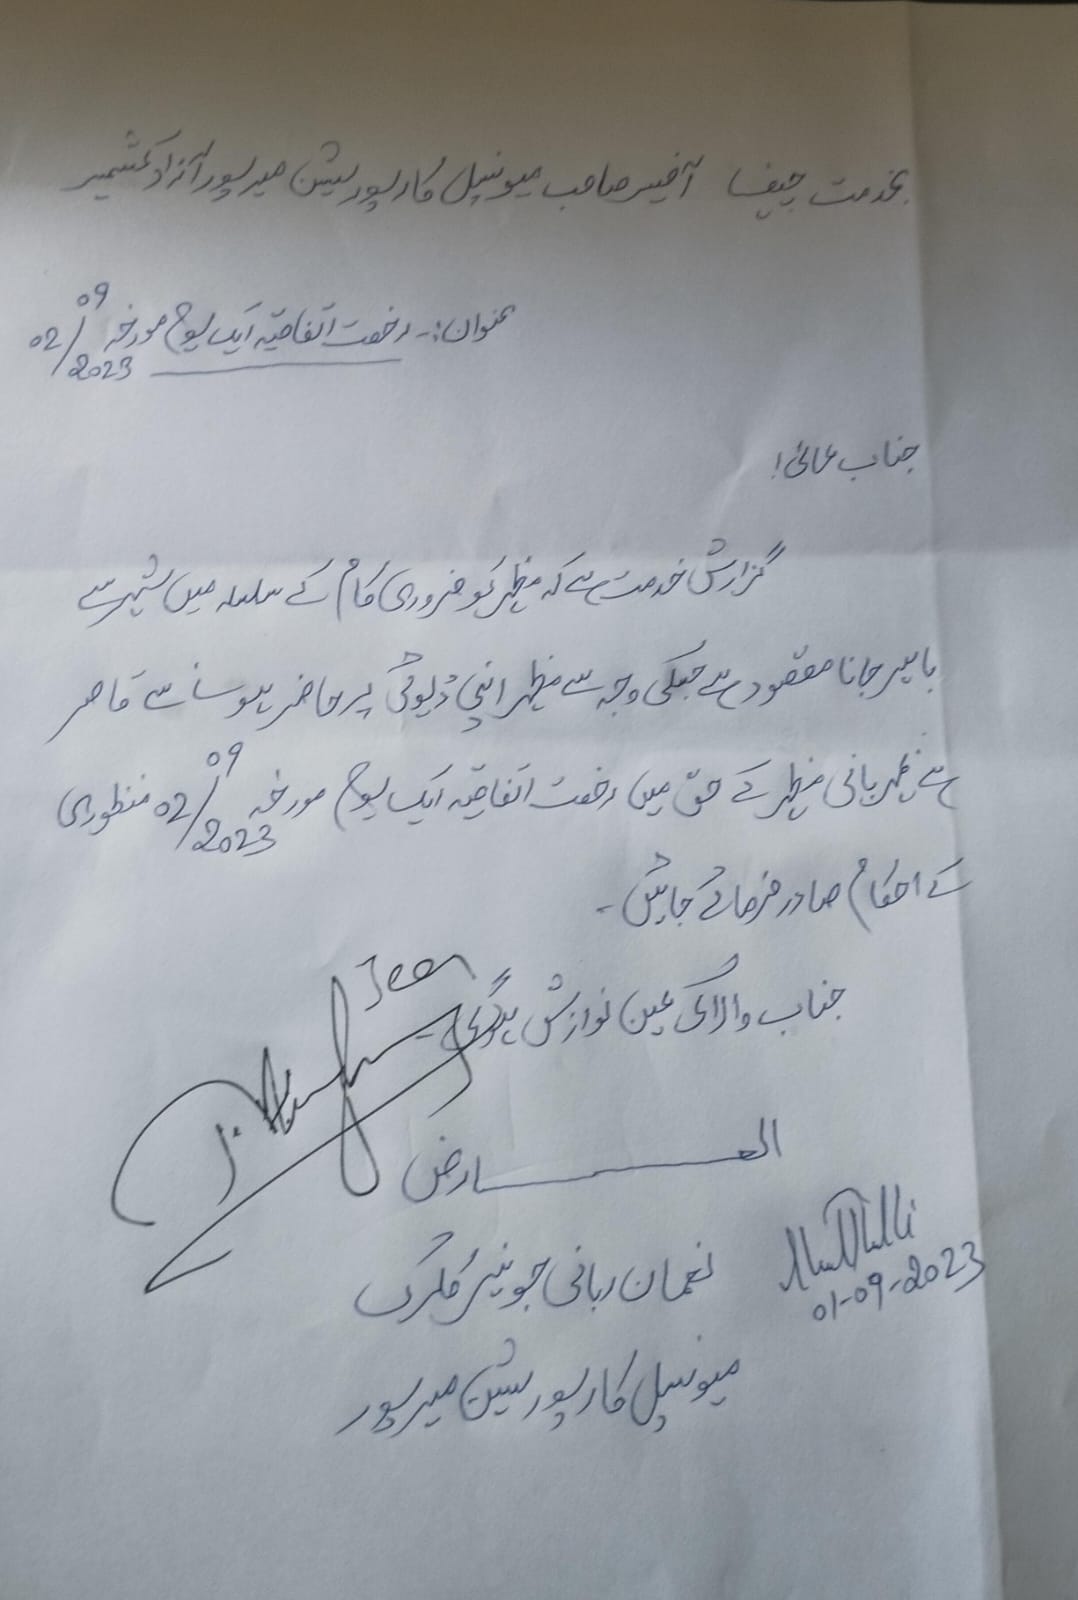 بخدمت چیف آفیسر صاحب میونسپل کارپوریشن میرپور آزاد کشمیر
عنوان:۔ رخصت اتفاقیہ ایک یوم مورخہ 02/09/2023
جناب عالی!
گزارش خدمت ہے کہ مظہر کو ضروری کام کے سلسلہ میں شہر سے
باہر جانا مقصود ہے جسکی وجہ سے مظہر اپنی ڈیوٹی پر حاضر ہونے سے قاصر
ہے مہربانی مظہر کے حق میں رخصت اتفاقیہ ایک یوم مورخہ 02/09/2023 منظوری
کے احکام صادر فرمائے جائیں۔
جناب والا کی عین نوازش ہوگی۔
العــــــارض
نعمان ربانی جونیئر کلرک
01-09-2023
میونسپل کارپوریشن میرپور